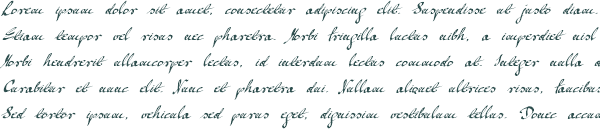 Lorem ipsum dolor sit amet, consectetur adipiscing elit. Suspendisse at justo diam.
Etiam tempor vel risus nec pharetra. Morbi fringilla luctus nibh, a imperdiet nisl
Morbi hendrerit ullamcorper lectus, id interdum lectus commodo at. Integer nulla
Curabitur et nunc elit. Nunc et pharetra dui. Nullam aliquet ultrices risus, faucibus
Sed tortor ipsum, vehicula sed purus eget, dignissim vestibulum tellus. Donec accum